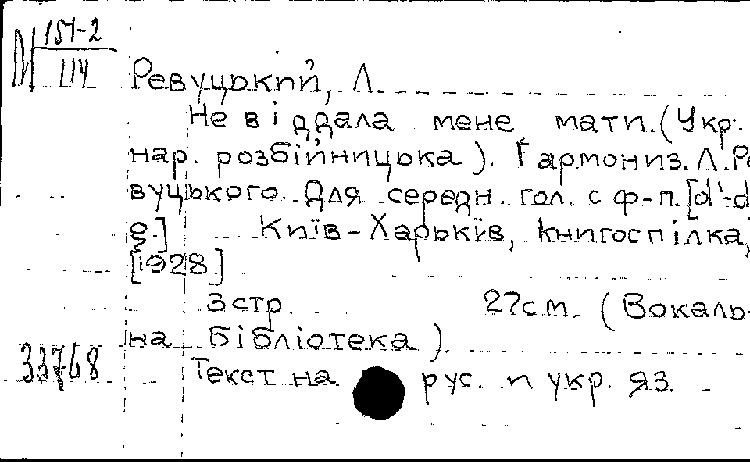 М 151-2
114
Ревуцький, Л.
Не віддала мене мати. (Укр.
нар. розбійницька). Гармониз. Л. Ре
вуцького. Для середн. гол. с ф-п. [d'-d
g.] Київ-Харьків, Книгоспілка,
[1928]
3 стр. 27 см. (Вокаль-
на бібліотека).
33768
Текст на рус. и укр. яз.